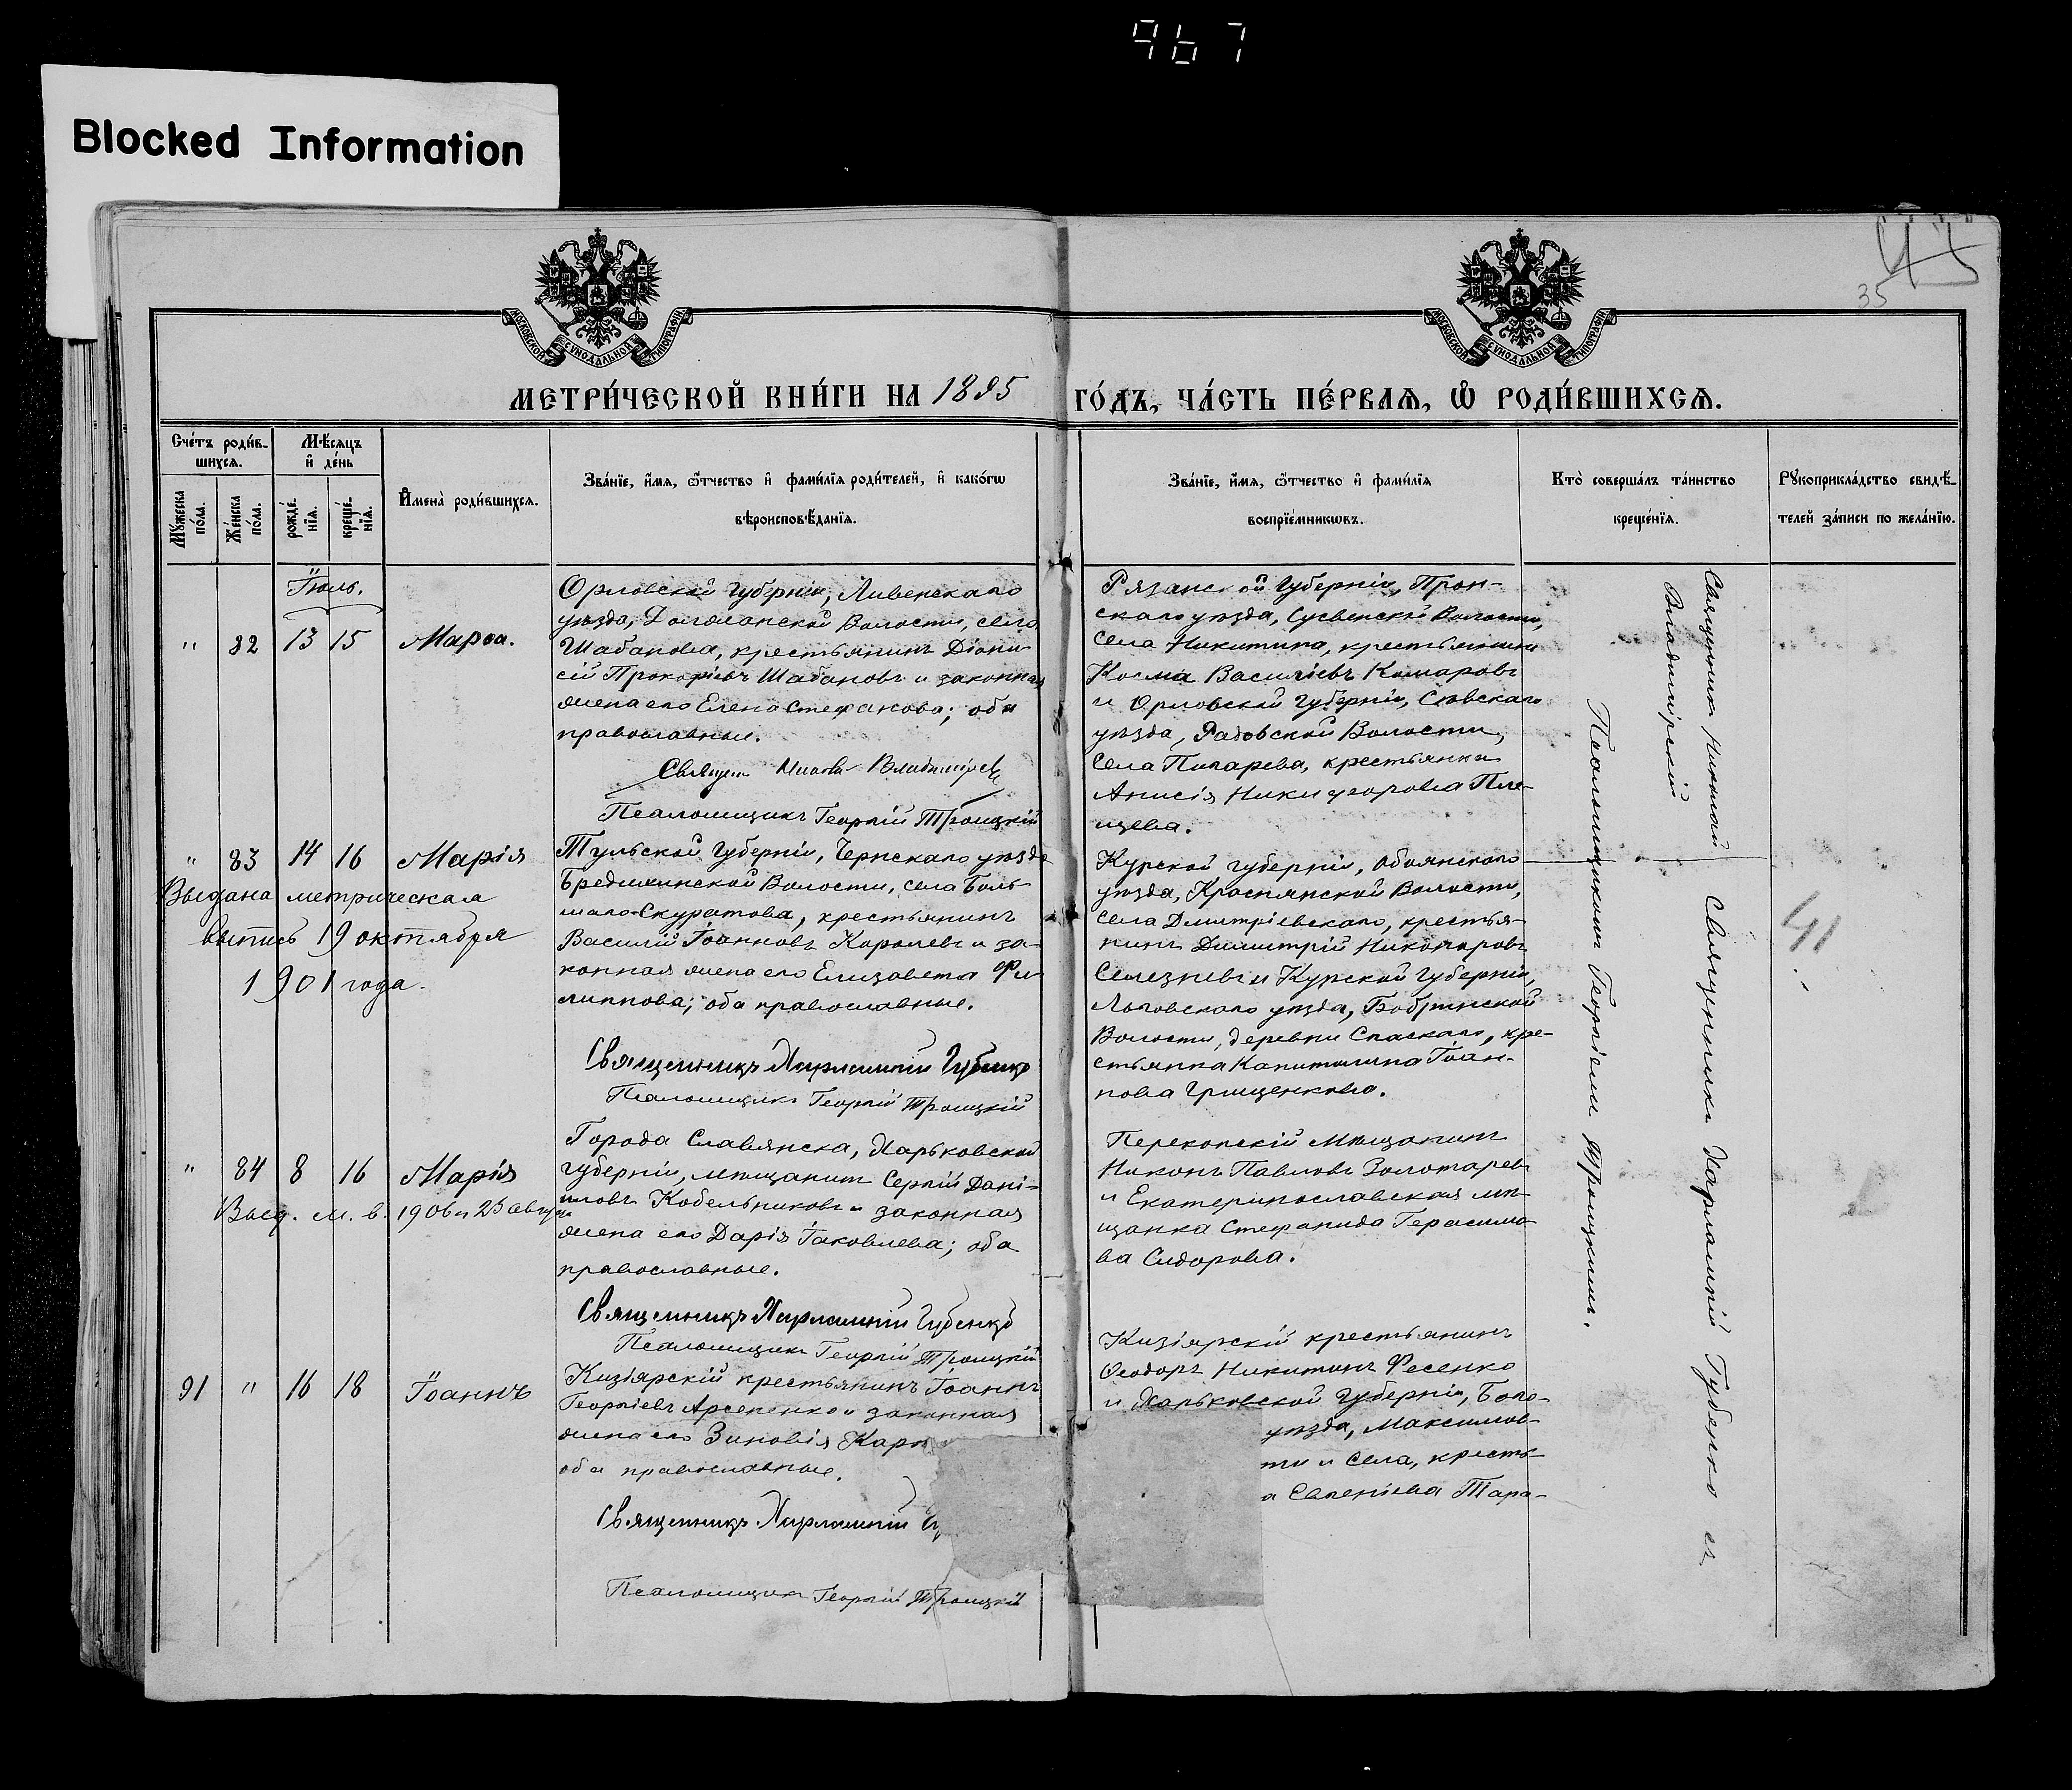 967
Blocked Information
45
35
МОСКОВСКОЙ СѴНОДАЛЬНОЙ ТИПОГРАФІИ
МОСКОВСКОЙ СѴНОДАЛЬНОЙ ТИПОГРАФІИ
МЕТРИ́ЧЕСКОЙ КНИ́ГИ НА 1895 ГО́ДЪ, ЧА́СТЬ ПЕ́РВАѦ, Ѡ҆ РОДИ́ВШИХСѦ.
Сче́тъ роди́в-
шихсѧ.
Мꙋ́жеска по́ла.
Же́нска по́ла.
Мѣ́сѧцъ
и҆ де́нь
рожде́-
нїѧ.
креще́-
нїѧ.
И҆мена̀ роди́вшихсѧ.
Зва́нїе, и҆́мѧ, ѻ҆́тчество и҆ фами́лїѧ роди́телей, и҆ како́гѡ
вѣроисповѣ́данїѧ.
Зва́нїе, и҆́мѧ, ѻ҆́тчество и҆ фами́лїѧ
воспрїе́мникѡвъ.
Кто̀ соверша́лъ та́инство
креще́нїѧ.
Рꙋкоприкла́дство свидѣ́-
телей за́писи по жела́нїю.
Іюль.
" 82 13 15 Марѳа.
Орловской Губерніи, Ливенскаго
уѣзда, Волости, села
Шабанова, крестьянинъ Діони-
сій Прокопіевъ Шабановъ и законная
жена его Елена Стефанова; оба
православные.
Священ Владимірскі
Псаломщикъ Георгій Троицкій
Рязанской Губерніи, Прон-
скаго уѣзда, Волости,
села Никитина, крестьянинъ
Косма Василіевъ Комаровъ
и Орловской Губерніи, Сѣвскаго
уѣзда, Волости,
села Пигарева, крестьянка
Анисія Никифорова Пле-
щева.
" 83 14 16 Марія
Выдана метрическая
выпись 19 октября
1901 года.
Тульской Губерніи, Чернскаго уѣзда
Волости, села Боль-
шого-Скуратова, крестьянинъ
Василій Іоанновъ Королевъ и за-
конная жена его Елизавета Фи-
липпова; оба православные.
Священникъ Харлампій Губенко
Псаломщикъ Георгій Троицкій
Курской губерніи, Обоянскаго
уѣзда, Краснянской Волости,
села Дмитріевскаго, крестья-
нинъ Димитрій Никоноровъ
Селезневъ и Курской Губерніи,
Льговскаго уѣзда, Бобринской
Волости, деревни Спаскаго, кре-
стьянка Капитолина Іоан-
нова Грищенкова.
41
" 84 8 16 Марія
Выд. м. в. 1906 г. 23 август
Города Славянска, Харьковской
губерніи, мѣщанинъ Сергій Дані-
иловъ Кобельниковъ и законная
жена его Дарія Іаковлева; оба
православные.
Священникъ Харлампій Губенко
Псаломщикъ Георгій Троицкій
Перекопскій мѣщанинъ
Никонъ Павловъ Золотаревъ
и Екатеринославская мѣ-
щанка Стефанида Герасимо-
ва Сидорова.
91 " 16 18 Іоаннъ
Кизіярскій крестьянинъ Іоаннъ
Георгіевъ Арсененко и законная
жена его Зиновія Карп
оба православные.
Священникъ Харлампій Гу
Псаломщикъ Георгій Троицкій
Кизіярскій крестьянинъ
Ѳеодоръ Никитинъ Фесенко
и Харьковской Губерніи, Бого-
уѣзда, Максимов-
ти и села, кресть-
а Евгеніева Тара-
Священникъ Николай
Владимірскій
Священникъ Харлампій Губенко съ
Псаломщикомъ Георгіемъ Троицкимъ.